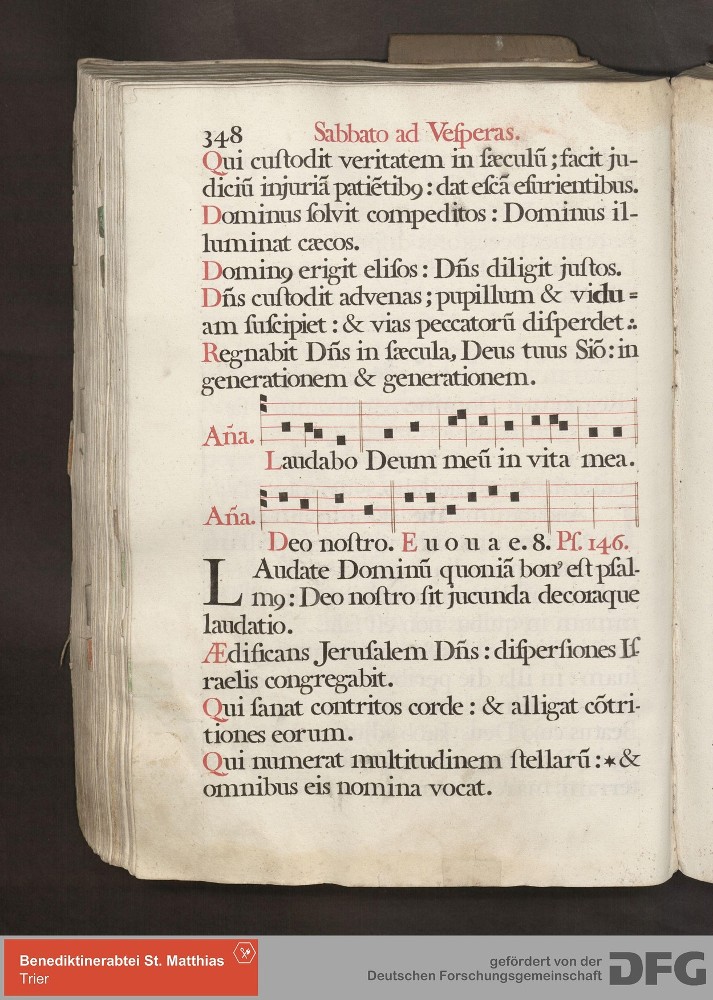 348 Sabbato ad Veſperas.
Qui cuſtodit veritatem in ſæculũ; facit ju-
diciũ injuriã patiẽtibꝯ: dat eſcã eſurientibus.
Dominus ſolvit compeditos: Dominus il-
luminat cæcos.
Dominꝯ erigit eliſos: Dñs diligit juſtos.
Dñs cuſtodit advenas; pupillum & vidu=
am ſuſcipiet: & vias peccatorũ diſperdet.:
Regnabit Dñs in ſæcula, Deus tuus Siõ: in
generationem & generationem.
Aña.
Laudabo Deum meũ in vita mea.
Aña.
Deo noſtro. E u o u a e. 8. Pſ. 146.
LAudate Dominũ quoniã bonꝰ eſt pſal-
mꝯ: Deo noſtro ſit jucunda decoraque
laudatio.
Ædificans Jeruſalem Dñs: diſperſiones Iſ
raelis congregabit.
Qui ſanat contritos corde: & alligat cõtri-
tiones eorum.
Qui numerat multitudinem ſtellarũ:✶&
omnibus eis nomina vocat.
Benediktinerabtei St. Matthias
Trier
gefördert von der
Deutschen Forschungsgemeinschaft DFG